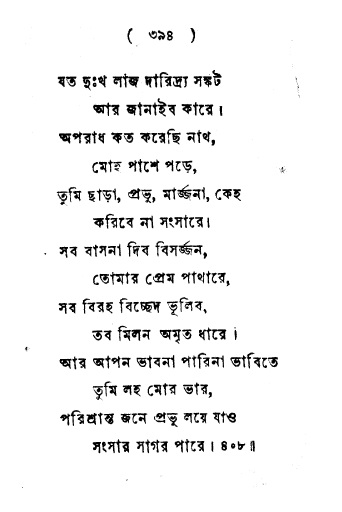 ( ৩৯৪ )
যত দুঃখ লাজ দারিদ্র্য সঙ্কট
আর জানাইব কারে।
অপরাধ কত করেছি নাথ,
মোহ পাশে পড়ে,
তুমি ছাড়া, প্রভু, মার্জ্জনা, কেহ
করিবে না সংসারে।
সব বাসনা দিব বিসর্জ্জন,
তোমার প্রেম পাথারে,
সব বিরহ বিচ্ছেদ ভূলিব,
তব মিলন অমৃত ধারে।
আর আপন ভাবনা পারিনা ভাবিতে
তুমি লহ মোর ভার,
পরিশ্রান্ত জনে প্রভু লয়ে যাও
সংসার সাগর পারে। ৪০৮॥